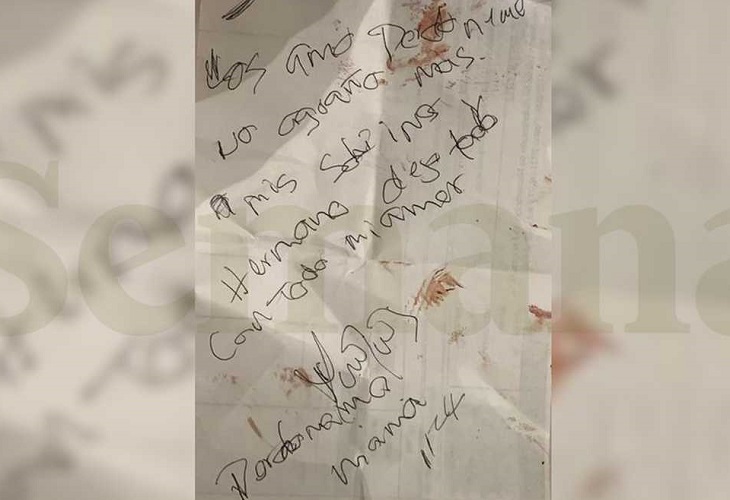 Los amo Perdonenme
no aguanto mas.
A mis Sobrinos
Hermano dejo todo
Con Todo mi amor
Perdoname
mama
Semana